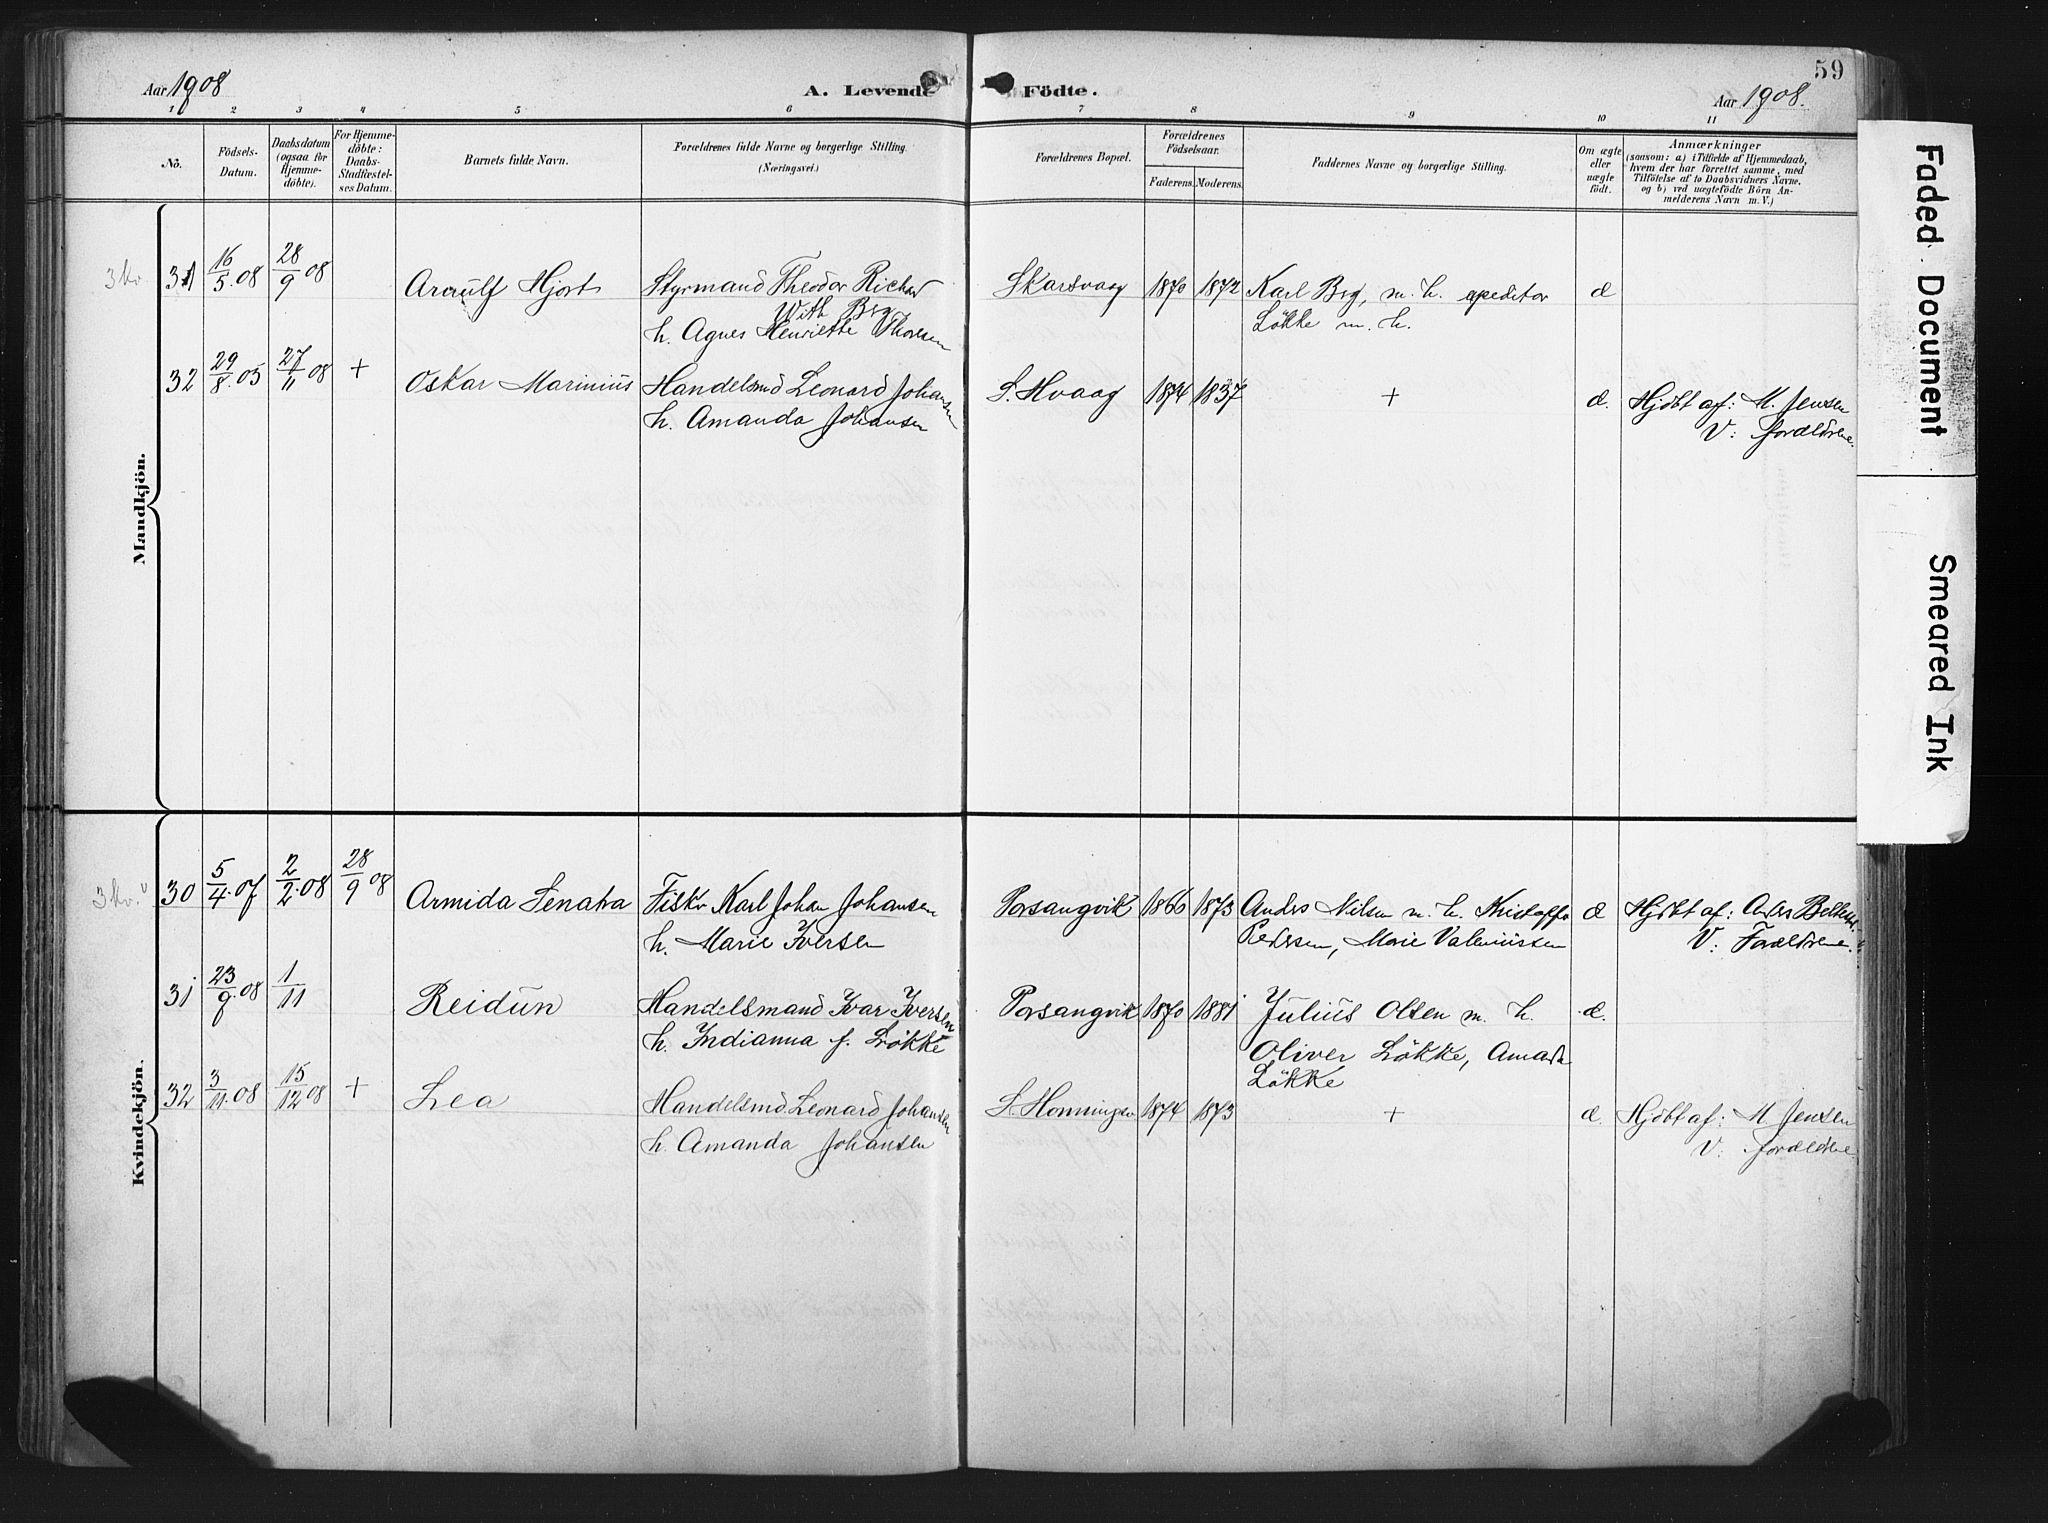 59
Aar 1908
A. Levende Födte.
Aar 1908.
1 2 3 4 5 6 7 8 9 10 11
No.
Födsels-Datum.
Daabsdatum (ogsaa for Hjemme-döbte).
For Hjemme-döbte: Daabs-Stadfæstel-ses Datum.
Barnets fulde Navn.
Forældrenes fulde Navne og borgerlige Stilling.
(Næringsvei.)
Forældrenes Bopæl.
Forældrenes Födselsaar.
Faderens. Moderens.
Faddernes Navne og borgerlige Stilling.
Om ægte eller uægte födt.
Anmærkninger
(saasom: a) i Tilfælde af Hjemmedaab,
hvem der har forrettet samme, med
Tilföielse af to Daabsvidners Navne,
og b) ved uægtefödte Börn An-
melderens Navn m. V.)
Mandkjön.
3 kv. 31 16/5 08 28/9 08 Arnulf Hjort Styrmand Theodor Richar Skarsvaag 1870 1872 Karl Brg, m. h. expeditor æ
With Brg,
Løkke m. h.
h. Agnes Henriette Thoresen
32 29/8 05 27/11 08 + Oskar Marinius Handelsmd Leonard Johansen S. Hvaag 1874 1837 + æ. Hjdbt af: M. Jensen
h. Amanda Johansen
V: forældrene.
Kvindekjön.
3 kv. v 30 5/4 07 2/2 08 28/9 08 Armida Senatra Fiskr Karl Johan Johansen Porsangvik 1866 1873 Andrs Nilsen m. h. Kristoffr æ Hjdbt af:
h. Marie Iversen
Pedersen, Marie Valeniussen
V: Forældrene.
31 23/9 08 1/11 Reidun Handelsmand Ivar Iversen Porsangvik 1870 1881 Julius Olsen m. h. æ.
h. Indianna f. Løkke
Oliver Løkke, Amada
Løkke
32 3/11 08 15/12 08 + Lea Handelsmd. Leonard Johansen S. Honningsv 1874 1873 + æ. Hjdbt af: M Jensen
h. Amanda Johansen
V: forældrene
Faded Document
Smeared Ink